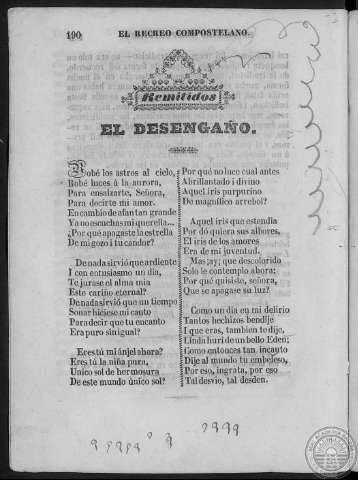 190
EL RECREO COMPOSTELANO.
Remitidos
EL DESENGAÑO.
Robé los astros al cielo,
Robé luces á la aurora,
Para ensalzarte, Señora,
Para decirte mi amor.
En cambio de afan tan grande
Ya no escuchas mi querella...
¿Por qué apagaste la estrella
De mi gozo i tu candor?
De nada sirvió que ardiente
I con entusiasmo un dia,
Te jurase el alma mia
Este cariño eternal?
De nada sirvió que un tiempo
Sonar hiciese mi canto
Para decir que tu encanto
Era puro sin igual?
Eres tú mi ánjel ahora?
Eres tú la niña pura,
Unico sol de hermosura
De este mundo único sol?
Por qué no luce cual antes
Abrillantado i divino
Aquel iris purpurino
De magnífico arrebol?
Aquel iris que estendia
Por dó quiera sus albores,
El iris de los amores
Era de mi juventud.
Mas ¡ay; que descolorido
Solo le contemplo ahora:
Por qué quisiste, señora,
Que se apagase su luz?
Como un dia en mi delirio
Tantos hechizos bendije
I que eras, tambien te dije,
Linda huri de un bello Eden;
Como entonces tan incauto
Dije al mundo tu embeleso,
Por eso, ingrata, por eso
Tal desvio, tal desden.